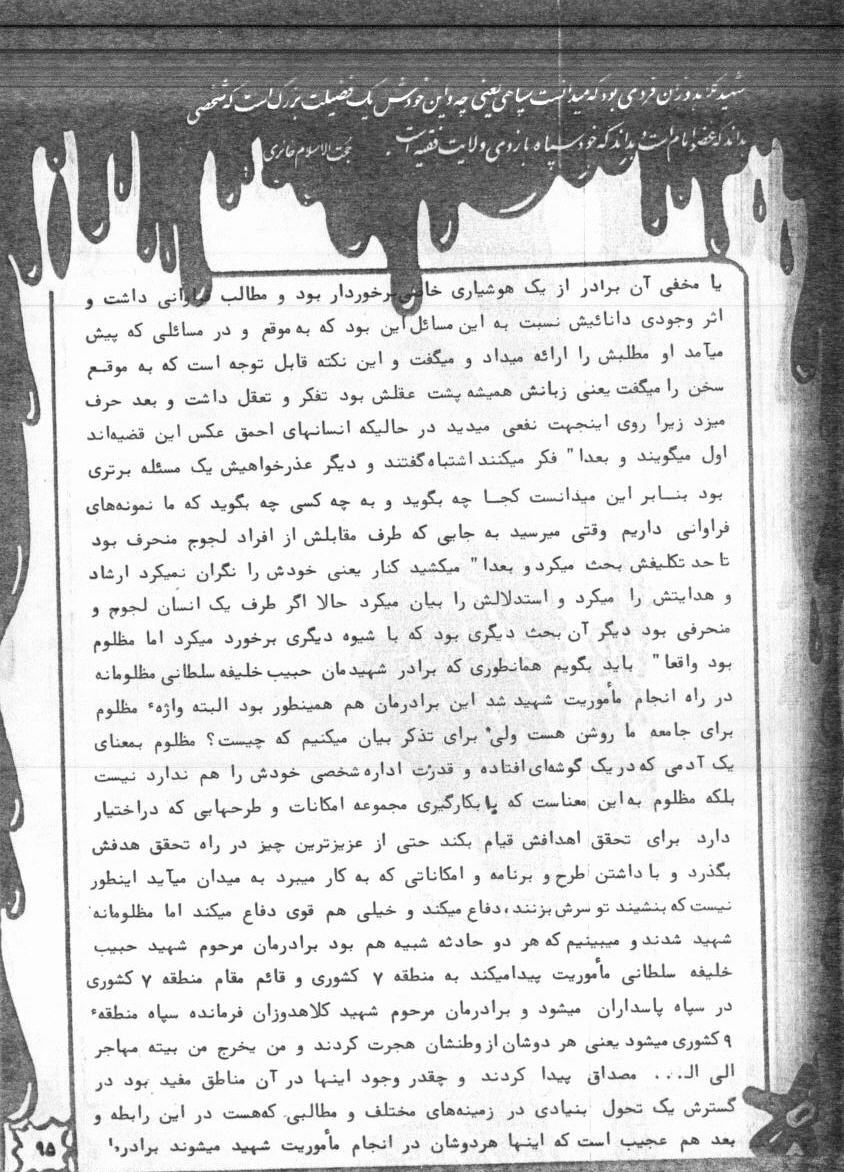 شهید کلاهدوزان فردی بود که میدانست سپاهی یعنی چه و این خودش یک فضیلت بزرگ است که شخصی
بداند که عضد امام است و بداند که خود سپاه بازوی ولایت فقیه است. حجت الاسلام حائری
یا مخفی آن برادر از یک هوشیاری خاصی برخوردار بود و مطالب فراوانی داشت و
اثر وجودی دانائیش نسبت به این مسائل این بود که به موقع و در مسائلی که پیش
میآمد او مطلبش را ارائه میداد و میگفت و این نکته قابل توجه است که به موقـع
سخن را میگفت یعنی زبانش همیشه پشت عقلش بود تفکر و تعقل داشت و بعد حرف
میزد زیرا روی اینجهت نفعی میدید در حالیکه انسانهای احمق عکس این قضیه‌اند
اول میگویند و بعدا" فکر میکنند اشتباه گفتند و دیگر عذرخواهیش یک مسئله برتری
بود بنـابر این میدانست کجـا چه بگوید و به چه کسی چه بگوید که ما نمونه‌های
فراوانی داریم وقتی میرسید به جایی که طرف مقابلش از افراد لجوج منحرف بود
تا حد تکلیفش بحث میکرد و بعدا" میکشید کنار یعنی خودش را نگران نمیکرد ارشاد
و هدایتش را میکرد و استدلالش را بیان میکرد حالا اگر طرف یک انسان لجوج و
منحرفی بود دیگر آن بحث دیگری بود که با شیوه دیگری برخورد میکرد اما مظلوم
بود واقعا" باید بگویم همانطوری که برادر شهیدمان حبیب خلیفه سلطانی مظلومانه
در راه انجام مأموریت شهید شد این برادرمان هم همینطور بود البته واژهء مظلوم
برای جامعه ما روشن هست ولی برای تذکر بیان میکنیم که چیست؟ مظلوم بمعنای
یک آدمی که در یک گوشه‌ای افتاده و قدرت اداره شخصی خودش را هم ندارد نیست
بلکه مظلوم به این معناست که با بکارگیری مجموعه امکانات و طرحهایی که در اختیار
دارد برای تحقق اهدافش قیام بکند حتی از عزیزترین چیز در راه تحقق هدفش
بگذرد و با داشتن طرح و برنامه و امکاناتی که به کار میبرد به میدان میآید اینطور
نیست که بنشیند تو سرش بزنند، دفاع میکند و خیلی هم قوی دفاع میکند اما مظلومانه
شهید شدند و میبینیم که هر دو حادثه شبیه هم بود برادرمان مرحوم شهید حبیب
خلیفه سلطانی مأموریت پیدا میکند به منطقه ۷ کشوری و قائم مقام منطقه ۷ کشوری
در سپاه پاسداران میشود و برادرمان مرحوم شهید کلاهدوزان فرمانده سپاه منطقهء
۹ کشوری میشود یعنی هر دوشان از وطنشان هجرت کردند و من یخرج من بیته مهاجر
الی الـ... مصداق پیدا کردند و چقدر وجود اینها در آن مناطق مفید بود در
گسترش یک تحول بنیادی در زمینه‌های مختلف و مطالبی که هست در این رابطه و
بعد هم عجیب است که اینها هردوشان در انجام مأموریت شهید میشوند برادرو
۹۵